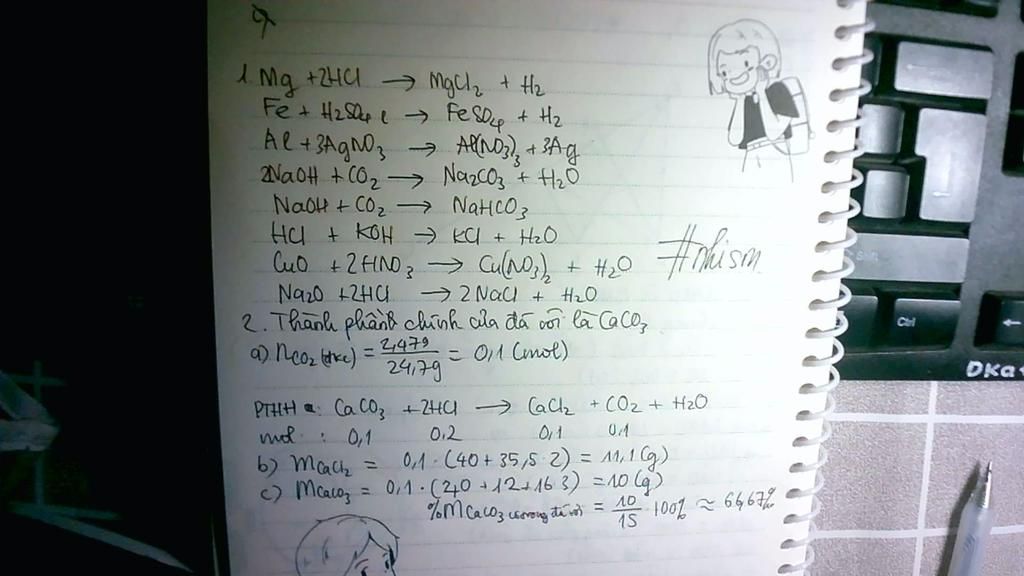 1. Mg + 2HCl → MgCl2 + H2
Fe + H2SO4 l → FeSO4 + H2
Al + 3AgNO3 → Al(NO3)3 + 3Ag
2NaOH + CO2 → Na2CO3 + H2O
NaOH + CO2 → NaHCO3
HCl + KOH → KCl + H2O
CuO + 2HNO3 → Cu(NO3)2 + H2O
#nhism
Na2O + 2HCl → 2NaCl + H2O
2. Thành phần chính của đá vôi là CaCO3
a) nCO2 (đkc) = 2,479 / 24,79 = 0,1 (mol)
PTHH : CaCO3 + 2HCl → CaCl2 + CO2 + H2O
mol : 0,1 0,2 0,1 0,1
b) mCaCl2 = 0,1 · (40 + 35,5 · 2) = 11,1 (g)
c) mCaCO3 = 0,1 · (40 + 12 + 16 · 3) = 10 (g)
%mCaCO3 có trong đá vôi = 10 / 15 · 100% ≈ 66,67%
Shift
Ctrl
←
DKa